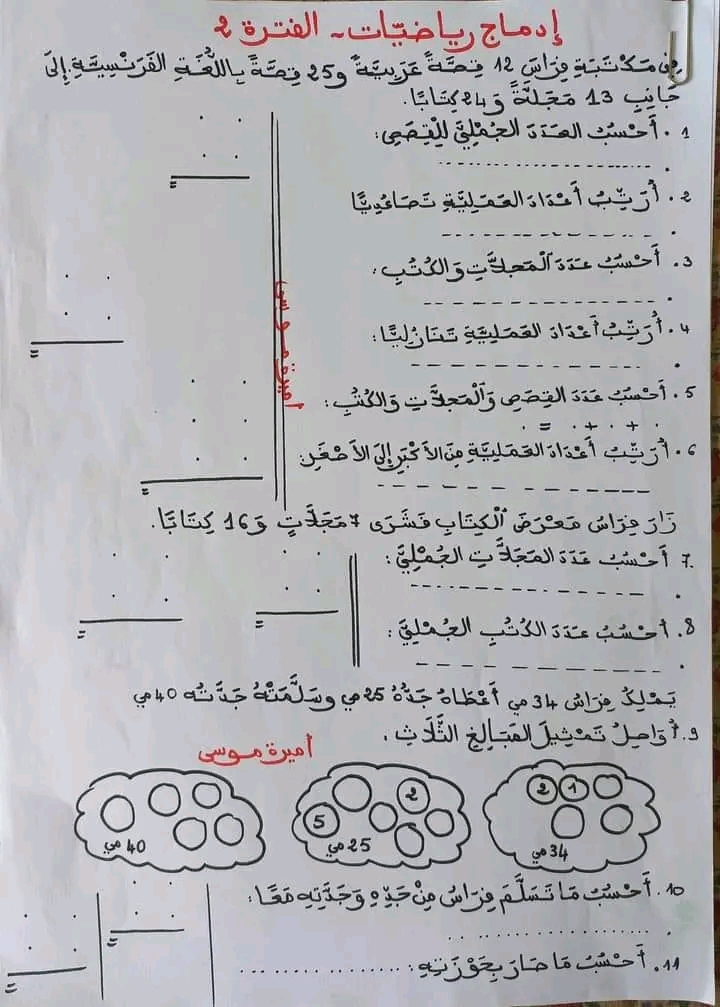 إدماج رياضيّات - الفترة 2
في مَكْتَبَةِ فِرَاسَ 12 قِصَّةً عَرَبِيَّةً و25 قِصَّةً بِاللُّغَةِ الفَرَنْسِيَّةِ إِلَى
جَانِبِ 13 مَجَلَّةً وَ24 كِتَابًا.
1. أَحْسُبُ العَدَدَ الجُمْلِيَّ لِلْقِصَصِ:
2. أُرَتِّبُ أَعْدَادَ العَمَلِيَّةِ تَصَاعُدِيًّا
3. أَحْسُبُ عَدَدَ الْمَجَلَّاتِ وَالكُتُبِ:
4. أُرَتِّبُ أَعْدَادَ العَمَلِيَّةِ تَنَازُلِيًّا:
5. أَحْسُبُ عَدَدَ القِصَصِ وَالْمَجَلَّاتِ وَالكُتُبِ:
. + . + . = .
6. أُرَتِّبُ أَعْدَادَ العَمَلِيَّةِ مِنَ الأَكْبَرِ إِلَى الأَصْغَرِ:
أميرة موسى
زَارَ فِرَاسُ مَعْرَضَ الْكِتَابِ فَشَرَى 7 مَجَلَّاتٍ وَ16 كِتَابًا.
7. أَحْسُبُ عَدَدَ المَجَلَّاتِ الجُمْلِيَّ:
8. أَحْسُبُ عَدَدَ الكُتُبِ الجُمْلِيَّ:
يَمْلِكُ فِرَاسُ 34 مي أَعْطَاهُ جَدُّهُ 25 مي وسَلَّمَتْهُ جَدَّتُهُ 40 مي
9. أُوَاصِلُ تَمْثِيلَ المَبَالِغِ الثَّلَاثِ.
أميرة موسى
1 2
34 مي
2
5
25 مي
40 مي
10. أَحْسُبُ مَا تَسَلَّمَ فِرَاسُ مِنْ جَدِّهِ وَجَدَّتِهِ مَعًا:
11. أَحْسُبُ مَا صَارَ بِحَوْزَتِهِ: